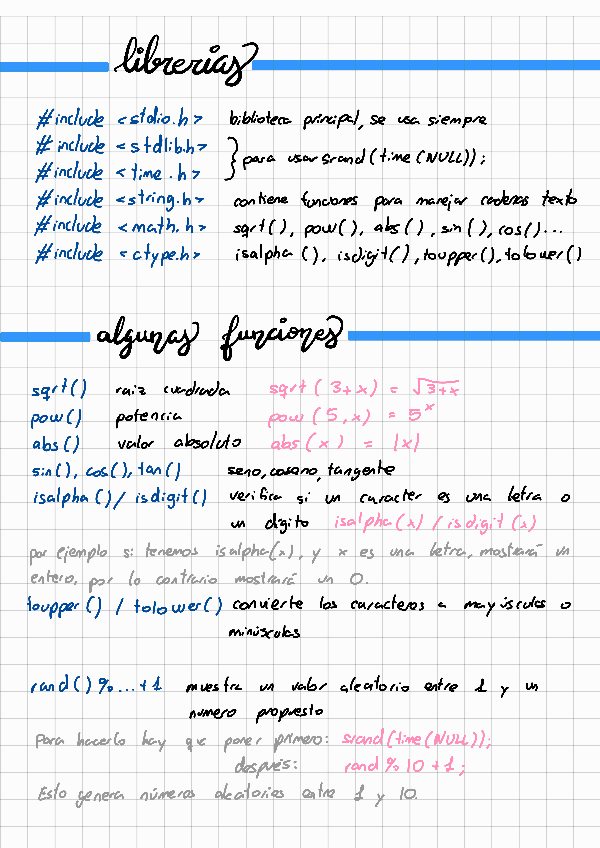 librerías
#include <stdio.h> biblioteca principal, se usa siempre
#include <stdlib.h>
#include <time.h> } para usar srand(time(NULL));
#include <string.h> contiene funciones para manejar cadenas texto
#include <math.h> sqrt(), pow(), abs(), sin(), cos()...
#include <ctype.h> isalpha (), isdigit(), toupper(), tolower()
algunas funciones
sqrt() raiz cuadrada sqrt(3+x) = √3+x
pow() potencia pow(5,x) = 5ˣ
abs() valor absoluto abs(x) = |x|
sin(), cos(), tan() seno, coseno, tangente
isalpha()/isdigit() verifica si un caracter es una letra o
un dígito isalpha(x)/isdigit(x)
por ejemplo si tenemos isalpha(x), y x es una letra, mostrará un
entero, por lo contrario mostrará un 0.
toupper() / tolower() convierte los caracteres a mayúsculas o
minúsculas
rand()%...+1 muestra un valor aleatorio entre 1 y un
número propuesto
Para hacerlo hay que poner primero: srand(time(NULL));
después: rand%10+1;
Esto genera números aleatorios entre 1 y 10.